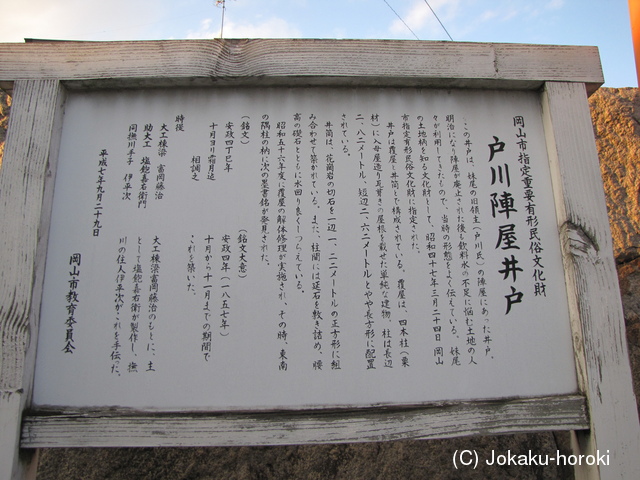 岡山市指定重要有形民俗文化財
戸川陣屋井戸
この井戸は、妹尾の旧領主(戸川氏)の陣屋にあった井戸。
明治になり陣屋が廃止された後も飲料水の不足に悩む土地の人
々が利用してきたもので、当時の形態をよく伝えている。妹尾
の土地柄を知る文化財として、昭和四十七年三月二十四日 岡山
市指定有形民俗文化財に指定された。
井戸は覆屋と井筒とで構成されている。覆屋は、四本柱(栗
材)に入母屋造り瓦葺きの屋根を載せた単純な建物。柱は長辺
二、八二メートル 短辺二、六二メートルとやや長方形に配置
されている。
井筒は、花崗岩の切石を一辺一、二二メートルの正方形に組
み合わせて築かれている。また、柱間には延石を敷き詰め、腰
高の礎石とともに水回り良くしつらえている。
昭和五十六年度に覆屋の解体修理が実施され、その時、東南
の隅柱の枘に次の墨書銘が発見された。
(銘文)
安政四丁巳年
十月ヨリ霜月迠
相調之
特後
大工棟梁 富岡藤治
助大工 塩飽嘉右衛門
同撫川手子 伊平次
(銘文大意)
安政四年(一八五七年)
十月から十一月までの期間で
これを築いた。
大工棟梁富岡藤治のもとに、主
として塩飽嘉右衛が製作し、撫
川の住人伊平次がこれを手伝った。
平成七年九月二十九日
岡山市教育委員会
(C) Jokaku-horoki